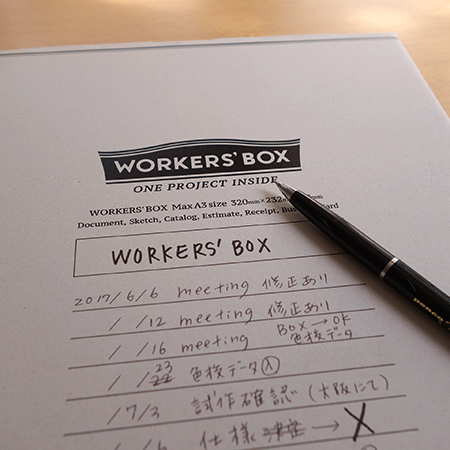 WORKERS' BOX
ONE PROJECT INSIDE
WORKERS' BOX Max A3 size 320mm×232m
Document, Sketch, Catalog, Estimate, Receipt, Bus
WORKERS' BOX
2017/6/6 meeting 修正あり
/ /12 meeting 修正あり
/ /16 meeting BOX→OK
色校データ
/ /23 色校データ入
/7/3 試作確認(大阪にて)
仕様 → X